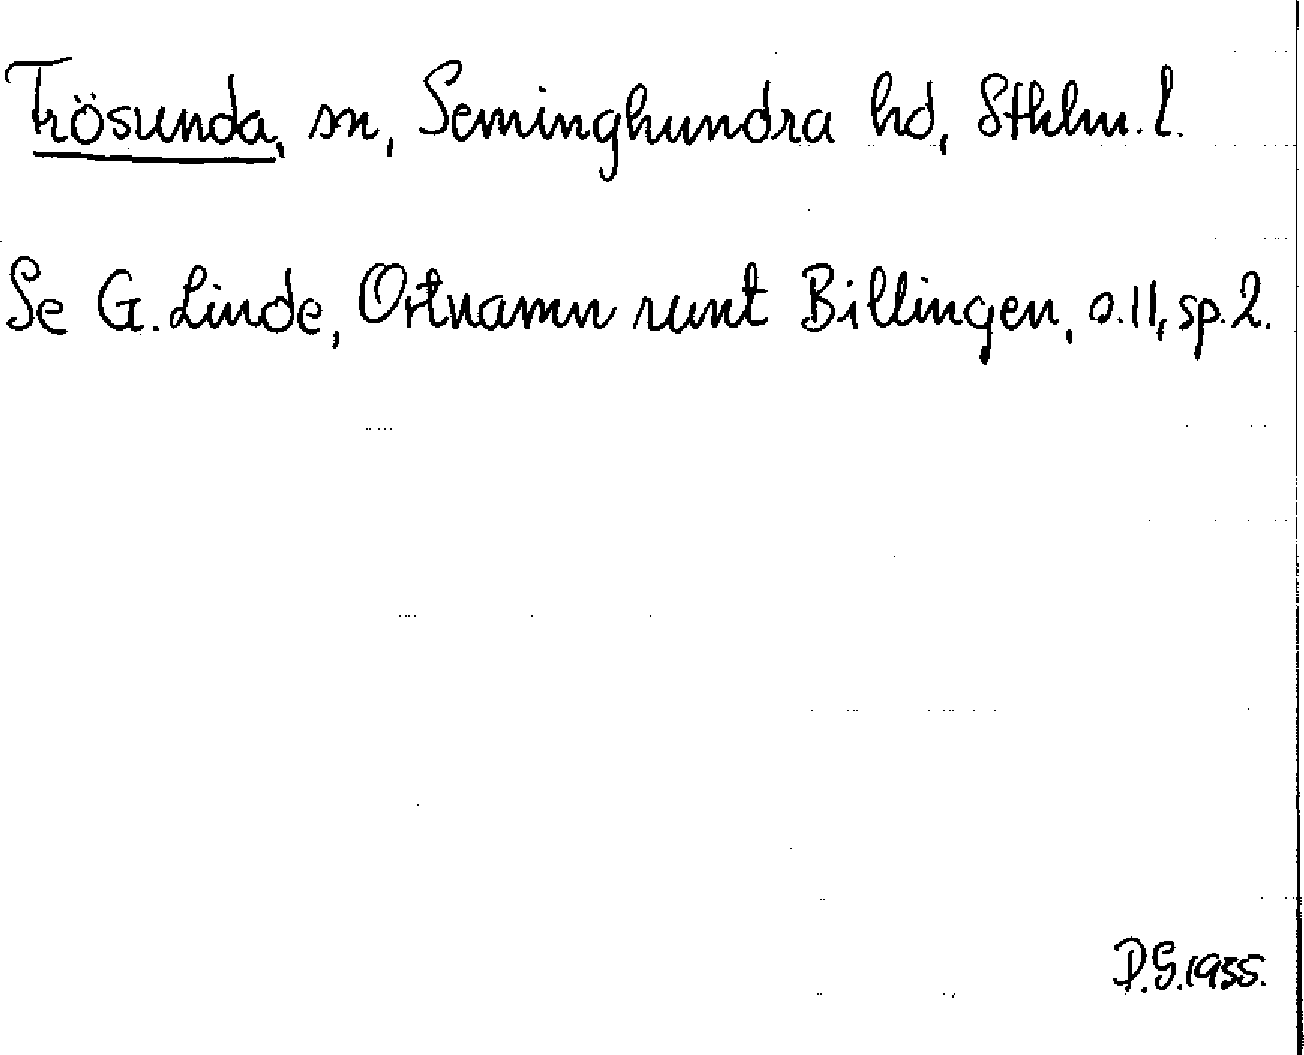 Trösunda, sn, Seminghundra hd, Sthlm. l.
Se G. Linde, Ortnamn runt Billingen, s. 11, sp. 2.
D.G. 1955.